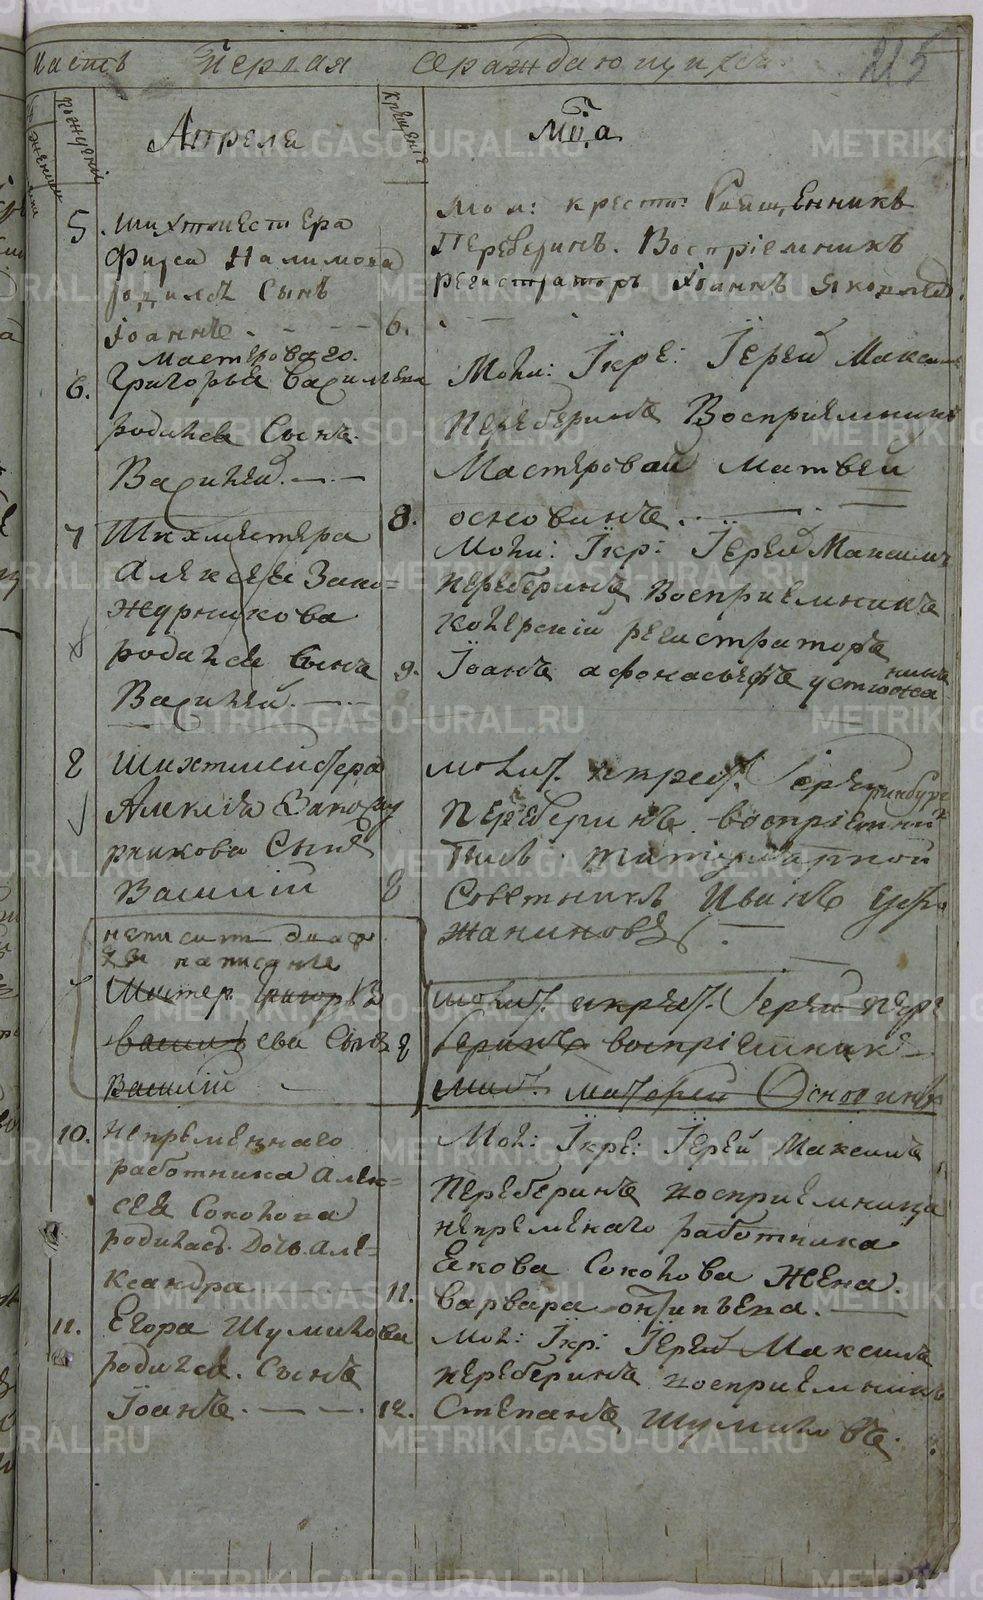 Часть Первая Ораждающихся
215
рождений
Крещение
Апреля
Мца
5. Шихтместера
Фирса Налимова
родился Сынъ
Iоаннъ 6.
Мол: крест: Священникъ
Переберинъ. Воспрiемникъ
регистраторъ Iоаннъ
6. Мастероваго
Григорья Васильева
родился Сынъ
Василей 8.
Моли: Iкре: Iерей Максимъ
Переберинъ Восприемникъ
Мастеровай Матвей
основинъ
7 Шихместера
Алексея Зако=
журникова
родился Сынъ
Василей 9.
Моли: Iкр: Iерей Максимъ
переберинъ Восприемникъ
колерскiй регистраторъ
Iоанъ афонасьевъ устюжанинъ
8 Шихтмейстера
Алексея Закожу
рникова Сынъ
Василiй 8
молит. икрест. Iерей
Переберинъ воспрiемни
былъ титулярной
Советникъ Иванъ Устю
жаниновъ
неписит двар
ды написанъ
Мастер Григорья
васильева Сынъ 8
Василiй
молит. икрест. Iерей пере
беринъ воспрiемникъ
маст. матфей Основинъ
10. непременнаго
работника Алек=
сея Соколова
родилась Дочь Але=
ксандра 11.
Мол: Iкре: Iерей Максимъ
Переберинъ восприемница
непременаго работника
Екова Соколова Жена
варвара онтипьева.
11. Егора Шумилова
родился Сынъ
Iоанъ 12.
Мол: Iкр: Iерей Максимъ
переберинъ восприемникъ
Степанъ Шумиловъ.
METRIKI.GASO-URAL.RU